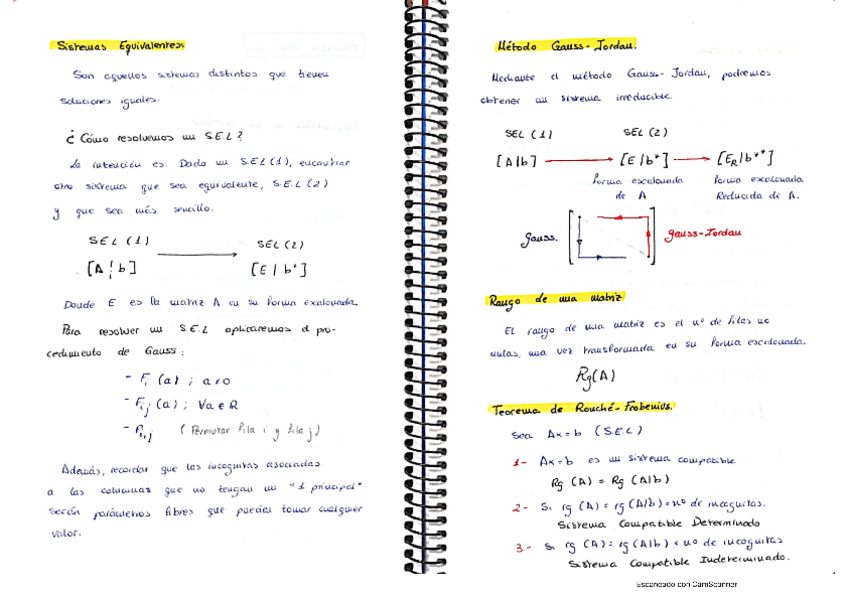 Sistemas Equivalentes:
Son aquellos sistemas distintos que tienen
soluciones iguales.
¿Cómo resolvemos un S.E.L?
La intención es: Dado un S.E.L (1), encontrar
otro sistema que sea equivalente, S.E.L (2)
y que sea más sencillo.
SEL (1) SEL (2)
[A ¦ b] [E | b*]
Donde E es la matriz A en su forma escalonada.
Para resolver un S.E.L aplicaremos el pro-
cedimiento de Gauss:
- Fi (a) ; a≠0
- Fij (a) ; ∀a∈R
- Fi,j (Permutar fila i y fila j)
Además, recordar que las incognitas asociadas
a las columnas que no tengan un "1 principal"
serán parámetros libres que puedan tomar cualquier
valor.
Método Gauss-Jordan.
Mediante el método Gauss-Jordan, podremos
obtener un sistema irreducible.
SEL (1) SEL (2)
[A|b] [E|b*] [ER|b**]
forma escalonada forma escalonada
de A Reducida de A.
Gauss. Gauss-Jordan
Rango de una matriz
El rango de una matriz es el nº de filas no
nulas, una vez transformada en su forma escalonada.
Rg(A)
Teorema de Rouché-Frobenius.
Sea Ax=b (S.E.L)
1- Ax=b es un sistema compatible
Rg (A) = Rg (A|b)
2- Si rg (A) = rg (A|b) = nº de incognitas.
Sistema Compatible Determinado
3- Si rg (A) = rg (A|b) < nº de incognitas
Sistema Compatible Indeterminado.
Escaneado con CamScanner